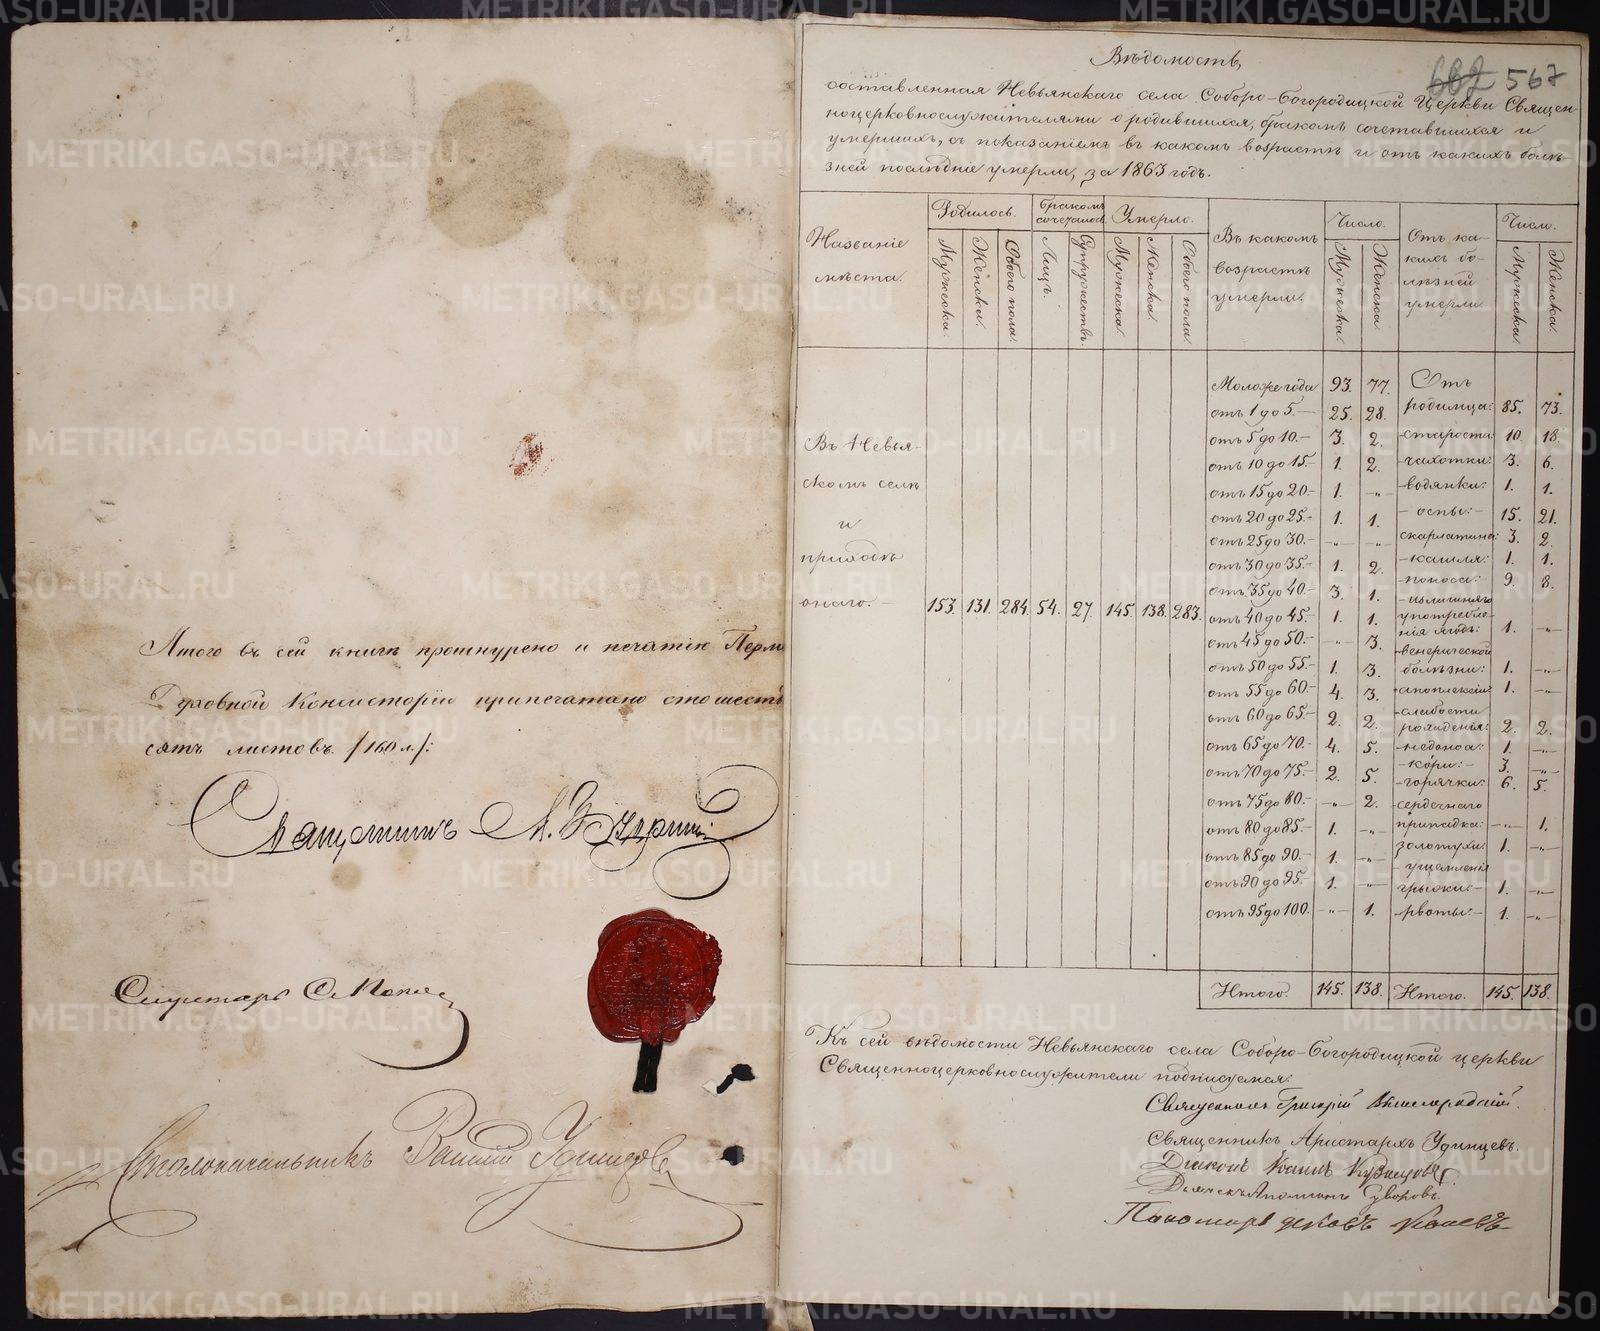 Итого въ сей книгѣ прошнурено и печатію Перм
Духовной Консисторіи припечатано стошесть
сятъ листовъ /160 л./:
Секретарь
Столоначальникъ Удинцовъ
Вѣдомость,
682 567
составленная Невьянскаго села Соборо-Богородицкой Церкви Священ-
ноцерковнослужителями о родившихся, бракомъ сочетавшихся и
умершихъ, съ показаніемъ въ какомъ возрастѣ и отъ какихъ болѣ-
зней послѣдніе умерли, за 1863 годъ.
Названіе мѣста.
Родилось.
Мужеска.
Женска.
Обоего пола.
Бракомъ сочеталось
Лицъ.
Супружествъ.
Умерло.
Мужеска.
Женска.
Обоего пола.
Въ какомъ возрастѣ умерли.
Число.
Мужеска.
Женска.
Отъ ка-
кихъ бо-
лѣзней
умерли
Число.
Мужска.
Женска.
Въ Невья-
скомъ селѣ
и
приходѣ
онаго.— 153. 131. 284. 54. 27. 145. 138. 283.
Моложе года 93. 77.
отъ 1 до 5.— 25. 28.
отъ 5 до 10.— 3. 2.
отъ 10 до 15.— 1. 2.
отъ 15 до 20.— 1. —„—
отъ 20 до 25.— 1. 1.
отъ 25 до 30.— —„— —„—
отъ 30 до 35.— 1. 2.
отъ 35 до 40.— 3. 1.
отъ 40 до 45.— 1. 1.
отъ 45 до 50.— —„— 3.
отъ 50 до 55.— 1. 3.
отъ 55 до 60.— 4. 3.
отъ 60 до 65.— 2. 2.
отъ 65 до 70.— 4. 5.
отъ 70 до 75.— 2. 5.
отъ 75 до 80.— —„— 2.
отъ 80 до 85.— 1. —„—
отъ 85 до 90.— 1. —„—
отъ 90 до 95.— 1. —„—
отъ 95 до 100. —„— 1.
Отъ
родимца: 85. 73.
—старости: 10. 18.
—чахотки: 3. 6.
—водянки: 1. 1.
—оспы:— 15. 21.
скарлатина: 3. 2.
—кашля: 1. 1.
—поноса: 9. 8.
—излишняго
употребле-
нія ягодъ: 1. —„—
—венерической
болѣзни: 1. —„—
—апоплексіи: 1. —„—
—слабости
рожденія: 2. 2.
—недоноса: 1. —„—
—кори:— 3. —„—
—горячки: 6. 5.
—сердечнаго
припадка: —„— 1.
золотухи: 1. —„—
—ущемленія
грыжи:— 1. —„—
—рвоты:— 1. —„—
Итого. 145. 138. Итого. 145. 138.
Къ сей вѣдомости Невьянскаго села Соборо-Богородицкой церкви
Священноцерковнослужители подписуемся:
Священникъ Григорій
Священникъ Аристархъ Удинцевъ.
Діаконъ Іоаннъ Кузнецовъ.
Дьячекъ
Пономарь Яковъ
METRIKI.GASO-URAL.RU